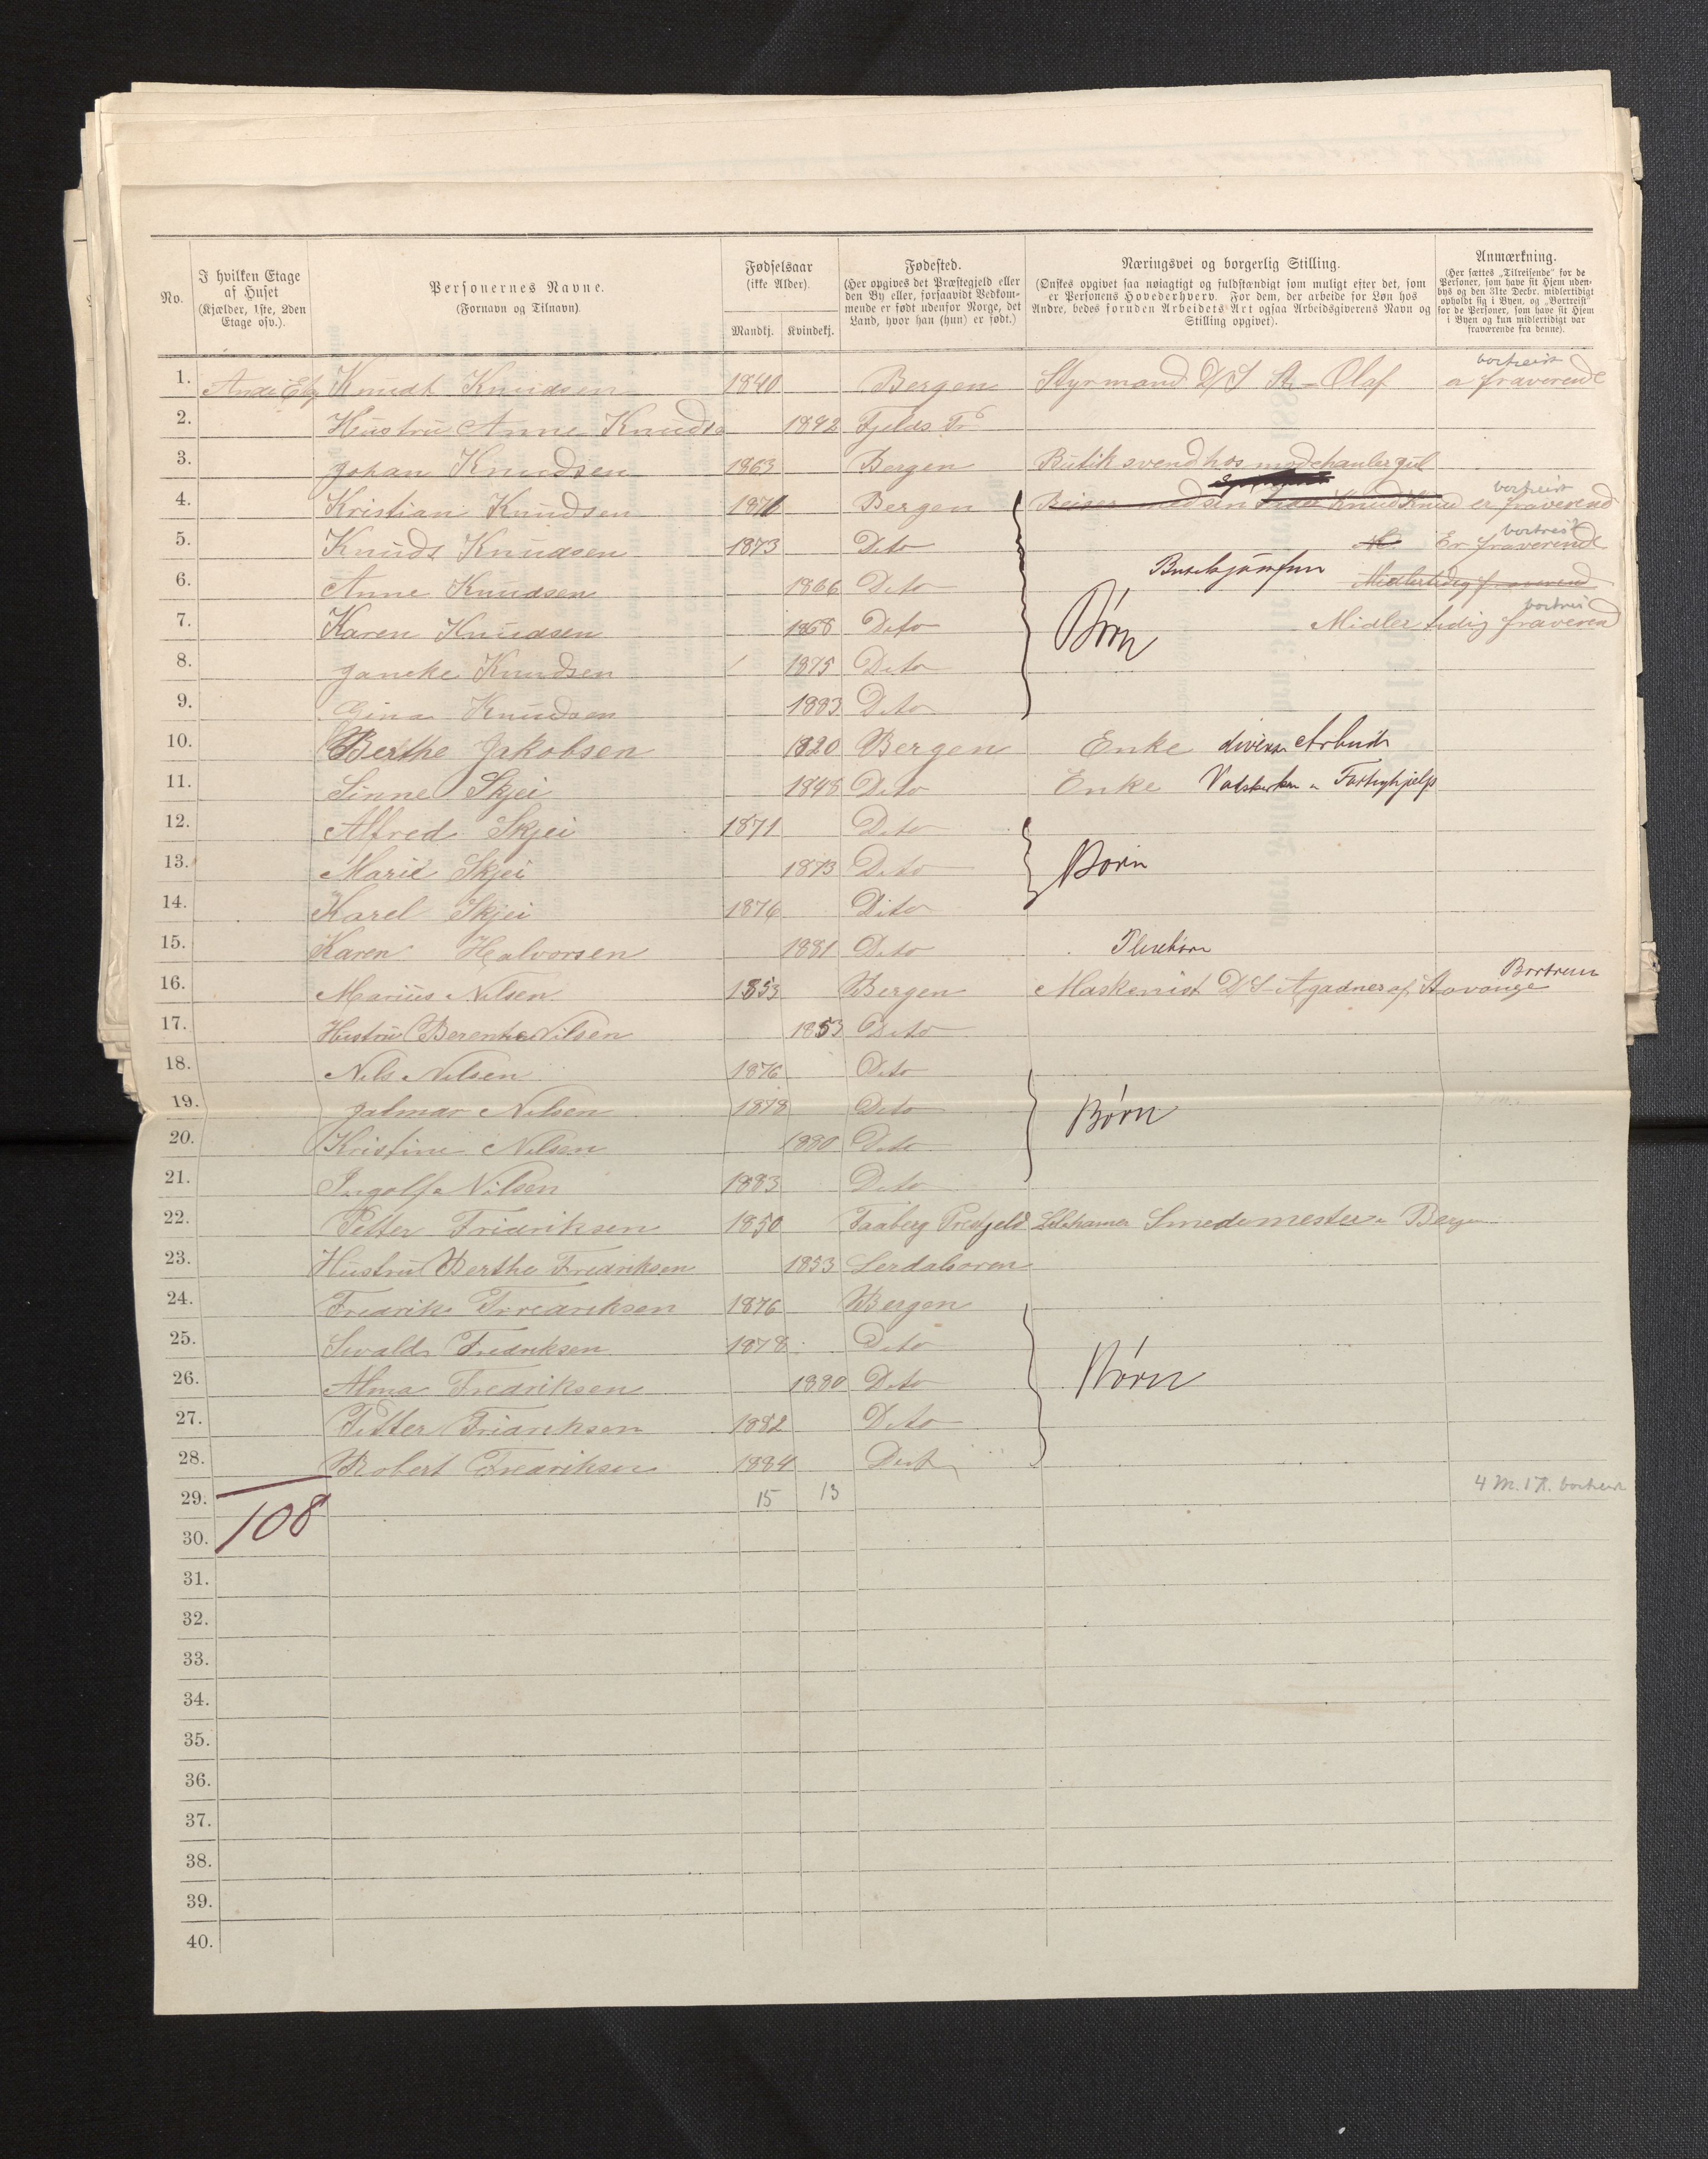 No. I hvilken Etage af Huset (Kjælder, 1ste, 2den Etage osv.). Personernes Navne. (Fornavn og Tilnavn). Fødselsaar (ikke Alder). Mandkj. Kvindekj. Fødested. (Her opgives det Præstegjeld eller den By eller, forsaavidt Vedkommende er født udenfor Norge, det Land, hvor han (hun) er født.) Næringsvei og borgerlig Stilling. (Ønskes opgivet saa nøiagtigt og fuldstændigt som muligt efter det, som er Personens Hovederhverv. For dem, der arbeide for Løn hos Andre, bedes foruden Arbeidets Art ogsaa Arbeidsgiverens Navn og Stilling opgivet). Anmærkning. (Her sættes „Tilreisende" for de Personer, som have sit Hjem udenbys og den 31te Decbr. midlertidigt opholdt sig i Byen, og „Bortreist" for de Personer, som have sit Hjem i Byen og kun midlertidigt var fraværende fra denne).
1. Knudt Knudsen 1840 Bergen Styrmand D/S St-Olaf bortreist er fraverende
2. Hustru Anne Knudsen 1842 Fjelds Pr
3. Johan Knudsen 1863 Bergen Butik svend hos
4. Kristian Knudsen 1871 Bergen Reiser med sin Knud bortreist er fraverend
5. Knuds Knudsen 1873 Dito bortreist Er fraverende
6. Anne Knudsen 1866 Dito Butikjomfru Midlertidig fraverend
7. Karen Knudsen 1868 Dito Børn Midler tidig fraverend bortreist
8. Jancke Knudsen 1875 Dito
9. Gina Knudsen 1883 Dito
10. Berthe Jakobsen 1820 Bergen Enke diverse Arbeide
11. Sinne Skjei 1848 Dito Enke Vadskerkone Fattighjelp
12. Alfred Skjei 1871 Dito
13. Marie Skjei 1873 Dito Børn
14. Karel Skjei 1876 Dito
15. Karen Halvorsen 1881 Dito Pleiebarn
16. Marius Nilsen 1853 Bergen Maskenist D/S Agadnes af Stavanger Bortreist
17. Hustru Berenthe Nilsen 1853 Dito
18. Nils Nilsen 1876 Dito
19. Jalmar Nilsen 1878 Dito Børn
20. Kristine Nilsen 1880 Dito
21. Ingolf Nilsen 1883 Dito
22. Petter Fridriksen 1850 Faaberg Prestjeld Lilehamer Smedemester i Bergen
23. Hustru Berthe Fredriksen 1853 Lerdalsoren
24. Fredrik Fredriksen 1876 Bergen
25. Sivald Fredriksen 1878 Dito
26. Alma Fredriksen 1880 Dito Børn
27. Petter Fridriksen 1882 Dito
28. Robert Fredriksen 1884 Dito
29. 15 13 4 M. 1 K. bortreist
30. 108
31.
32.
33.
34.
35.
36.
37.
38.
39.
40.